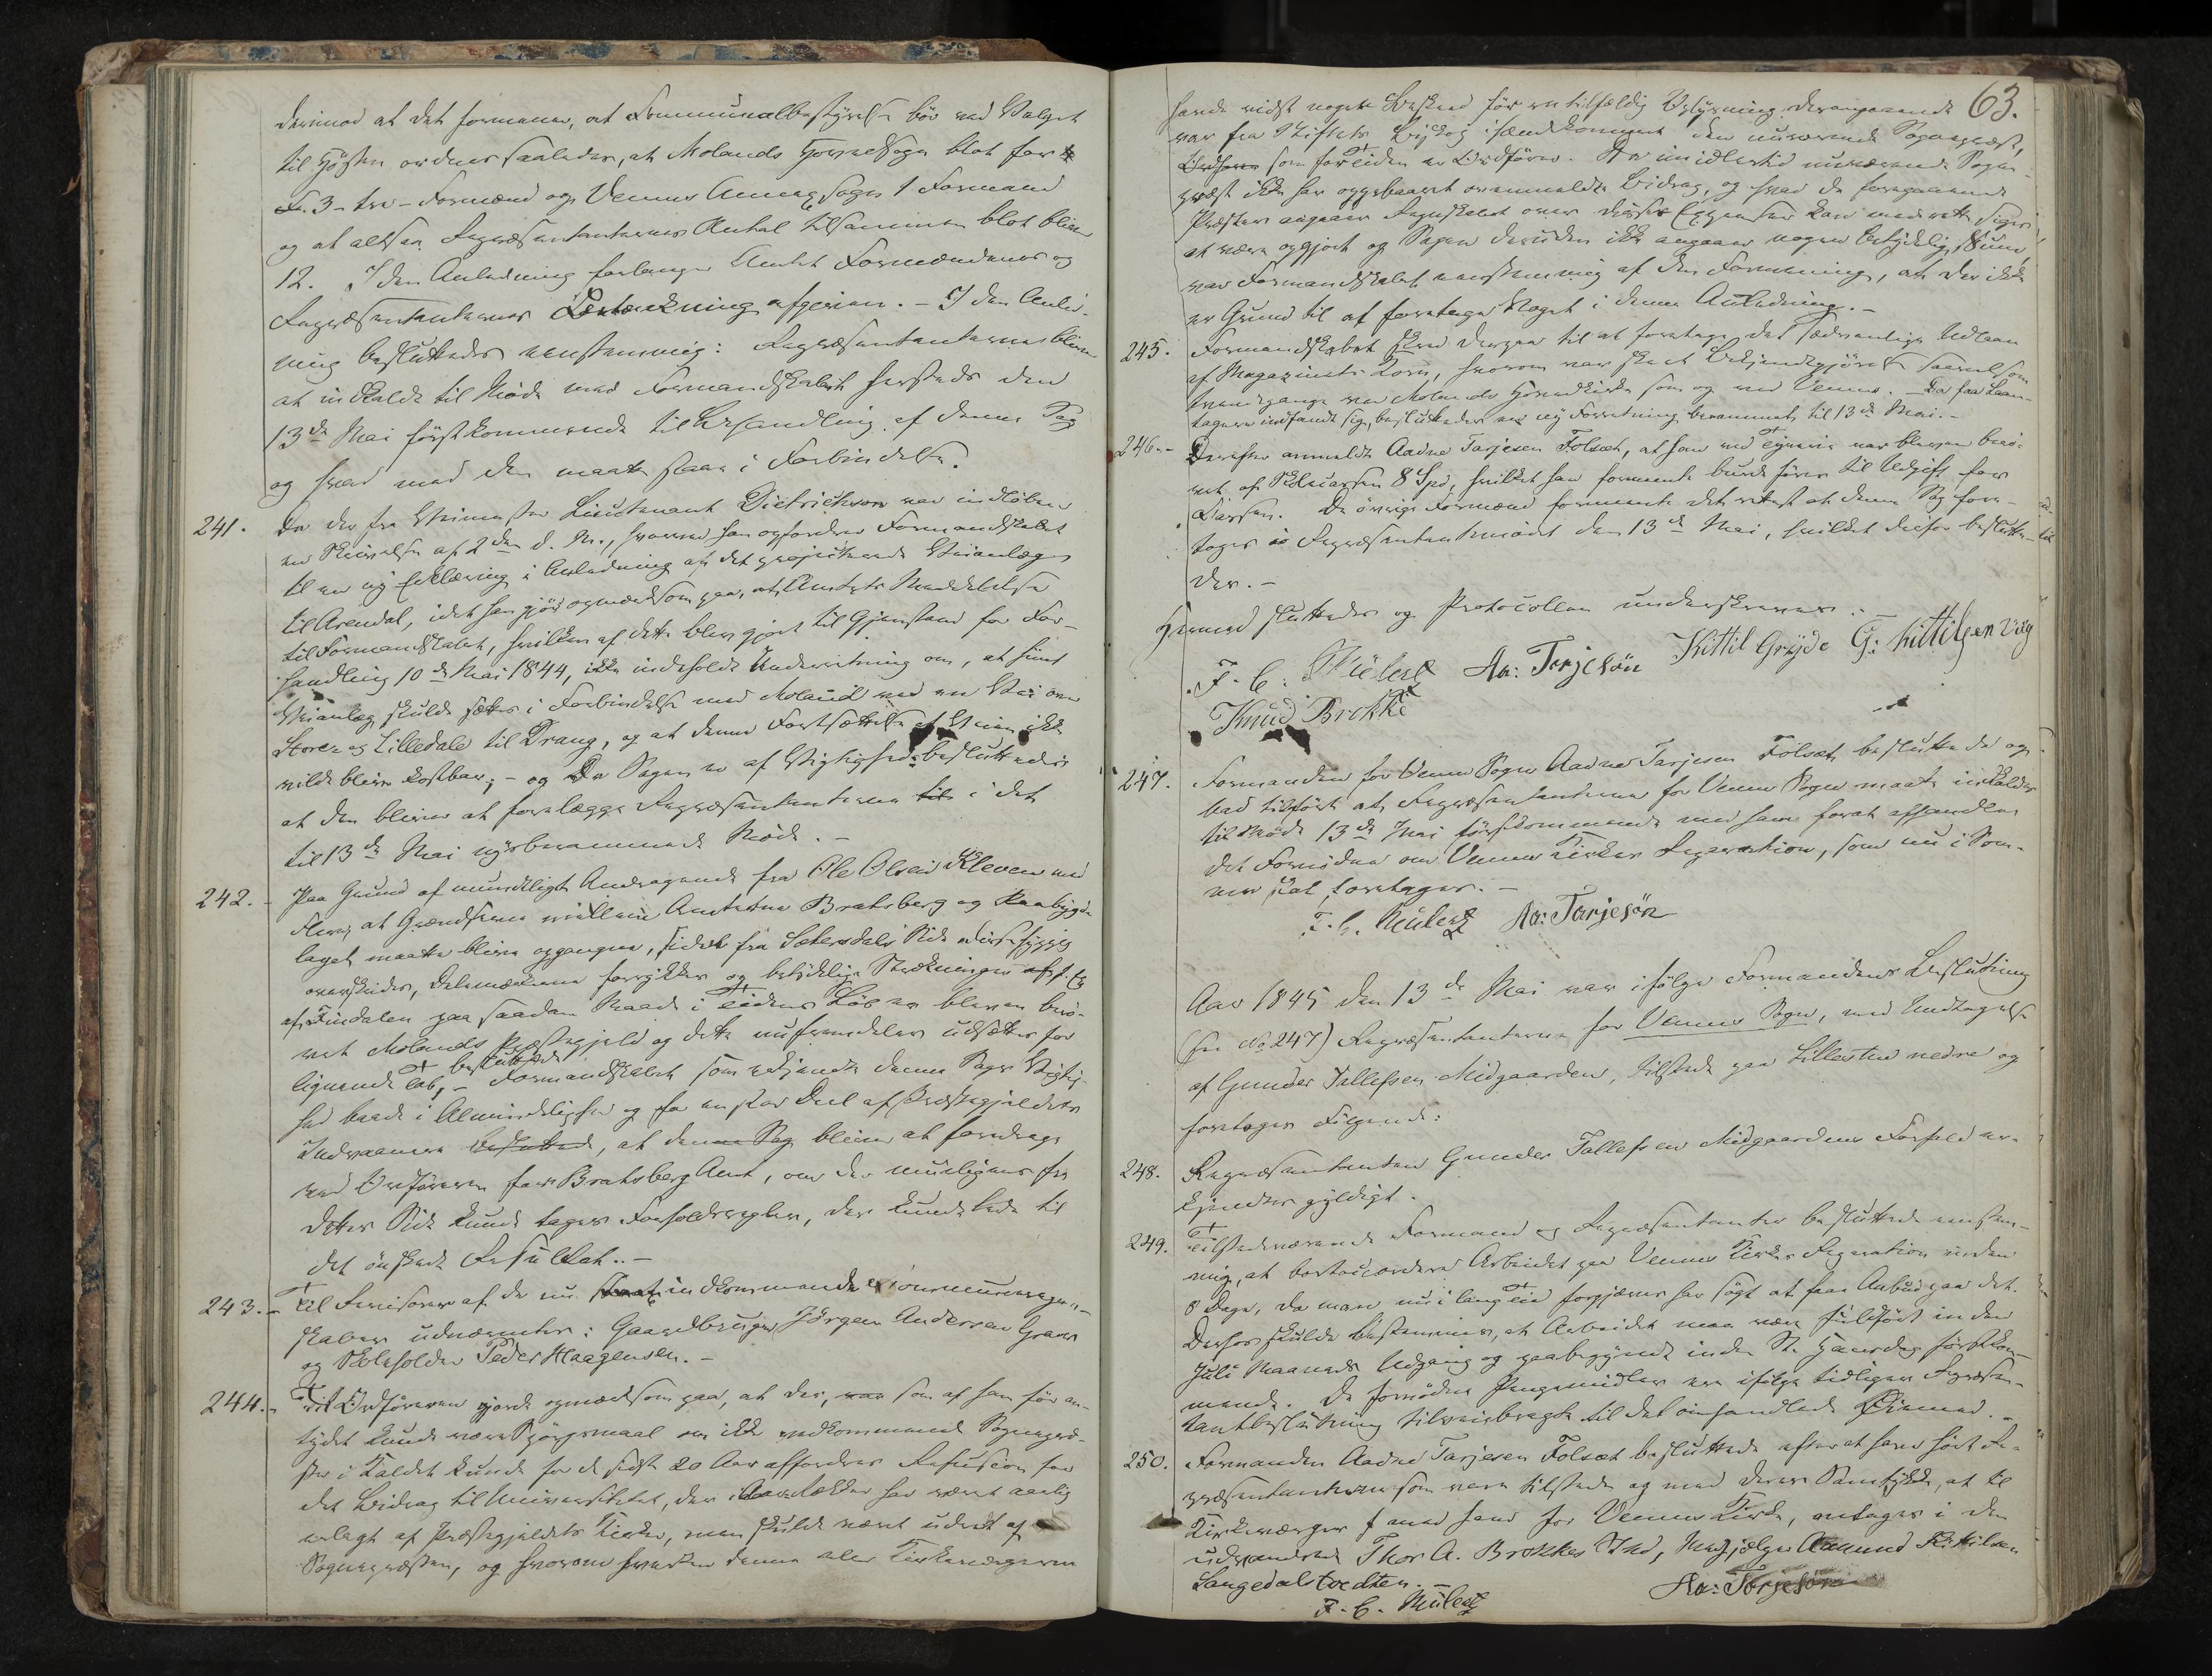 derimod at det formener, at Kommunalbestyrelse bör ved Valget
til Högsten ordnes saaledes, at Molands Hovedsogn blot faar
3 - tre - Formænd og Vennes Annexsogn 1 Formand
og at altsaa Repræsentanternes Antal tilsammen blot bliver
12. I den Anledning forlanger Amtet Formændenes og
Repræsentanternes Betænkning afgiven. - I den Anled-
ning besluttedes eenstemmig: Repræsentanterne bliver
at indkalde til Møde med Formandskabet hersteds den
13de Mai førstkommende til Behandling af denne Sag
og hvad med den maatte staae i Forbindelse.
241. Da der fra Lieutenant Dietrichson var indløben
en Skrivelse af 2den d. M., hvorved han opfordrer Formandskabet
til en ny Erklæring i Anledning af det projecterede Veianlæg
til Arendal, idet han gjør opmærksom paa, at Amtets Meddelelse
til Formandskabet, hvilken af dette blev gjort til Gjenstand for For-
handling 10de Mai 1844, ikke indeholdt Underretning om, at hiint
Veianlæg skulde sættes i Forbindelse med Moland ved en Vei over
Store- og Lilledale til Drang, og at denne Fortsættelse af Veien ikke
vilde blive kostbar; - og Da Sagen er af Vigtighed: besluttedes
at den bliver at forelægge Repræsentanterne i det
til 13de Mai nysberammede Møde. -
242. - Paa Grund af mundtligt Andragende fra Ole Olsen Kleven med
Flere, at Grændserne mellem Amterne Bratsberg og Raabygde-
laget maatte blive opgangne, fra Sætersdals Side
overskrides, Delemærkerne forrykkes og betydelige Strækninger af
af Findalen paa saadan Maade i Tidens Løb er bleven berö-
vet Molands Præstegjeld og dette nu fremdeles udsættes for
lignende Tab, - besluttede Formandskabet som erkjendte denne Sags Vigtig-
hed baade i Almindelighed og for en stor Deel af Præstegjeldets
Indvaanere besluttede, at denne Sag bliver at foredrage
ved Ordføreren for Bratsberg Amt, om der muligens fra
dettes Side kunde tages Forholdsregler, der kunde lede til
det önskede Resultat. -
243. - Til Revisorer af de nu indkommende Communeregn-
skaber udnævntes: Gaardbruger Jörgen Andersen Graver
og Skoleholder Peder Haagensen. -
244. - Ordføreren gjorde opmærksom paa, at der, som af ham før an-
tydet kunde være Spörgsmaal om ikke vedkommende Sognepræ-
ster i Kaldet kunde for de sidste 20 Aar affordres Refusion for
det Bidrag til Universitetet, der i Aar Rækker har været aarlig
erlagt af Præstegjeldets Kirker, men skulde været udredt af
Sognepræsten, og hvorom hverken denne eller Kirkeværgerne
63.
havde vidst nogen Beskeed før en tilfældig Oplysning derangaaende
var fra Stiftets Biskop ihændekommet den nuværende Sognepræst,
som for Tiden er Ordförer. Da imidlertid nuværende Sogne-
præst ikke har oppebaaret ovenmeldte Bidrag, og hvad de foregaaende
Præster angaaer Regnskabet over disses Expenser kan med rette siges
at være opgjort og Sagen desuden ikke angaaer nogen betydelig Sum,
var Formandskabet eenstemmig af den Formening, at der ikke
er Grund til at foretage Noget i denne Anledning. -
245. Formandskabet skred derpaa til at foretage det sædvanlige Udlaan
af Magazinets Korn, hvorom var skeet Bekjendtgjørelse saavel som
tvendegange ved Molands Hovedkirke som og ved Vennes. - Da faa Laan-
tagere indfandt sig, besluttedes en ny Forretning berammet til 13de Mai. -
246. - Derefter anmeldte Aadne Tarjesen Folsæt, at han ved Tyverie var bleven berö-
vet af Skolecassen 8 Spd, hvilket han formente burde føres til Udgift for
Cassen. De øvrige Formænd formente det rettest at denne Sag fore-
tages i Repræsentantmödet den 13de Mai, hvilket derfor beslutte-
des. -
Hermed sluttedes og Protocollen underskreves. -
F. C. Mülertz Aa: Tarjesön Kittil Gryde G: Kittilsen Vig
Knud Brokke
247. Formanden for Vennes Sogn Aadne Tarjesen Folsæt besluttede og
bad tilført at Repræsentanterne for Vennes Sogn maatte indkaldes
til Møde 13de Mai førstkommende med ham forat afhandles
det Fornödne om Vennes Kirkes Reparation, som nu i Som-
mer skal foretages. -
F. C. Mülertz Aa: Tarjesön
Aar 1845 den 13de Mai var ifölge Formandens Beslutning
(see No 247) Repræsentanterne for Vennes Sogn, med Undtagelse
af Gunder Tallefsen Midgaarden, tilstede paa Lillestue nedre og
foretoges Fölgende:
248. Repræsentanten Gunder Tallefsen Midgaardens Forfald er-
kjendtes gyldigt.
249. Tilstedeværende Formand og Repræsentanter besluttede eenstem-
mig, at bortaccordere Arbeidet paa Vennes Kirkes Reparation inden
8 Dage, da man nu i lang Tid forgjæves har sögt at faae Anbud paa det.
Derhos skulde bestemmes, at Arbeidet maa være fuldført inden
Juli Maaneds Udgang og paabegyndt inden St. Hansdag førstkom-
mende. De fornødne Pengemidler ere ifölge tidligere Repræsen-
tantbeslutning tilveiebragte til det omhandlede Øiemed. -
250. Formanden Aadne Tarjesen Folsæt besluttede efter at have hört Re-
præsentanterne som vare tilstede og med deres Samtykke, at til
Kirkeværger med ham for Vennes Kirke, antages i den
udvandrede Thor A. Brokkes Sted, Medhjælper Aamund Kittilsen
Langedalstvedten. -
F. C. Mülertz Aa: Tarjesön